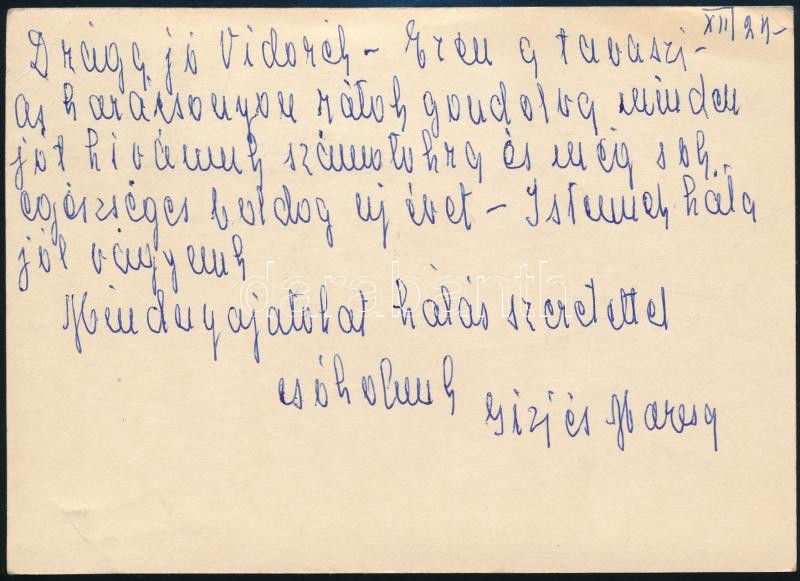 XII/24-
Drága jó Vidorék - Ezen a tavaszi-
as karácsonyon rátok gondolva minden
jót kivánunk számotokra és még sok
egészséges boldog uj évet - Istennek hála
jól vagyunk
darabanth
Mindnyajatokat hálás szeretettel
csókolunk
Gizi és Marcsa